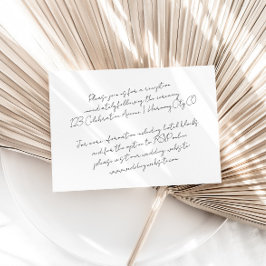 Please join us for a reception
immediately following the ceremony
123 Celebration Avenue | Harmony City, CO
For more information including hotel blocks,
and for the option to RSVP online
please visit our wedding website